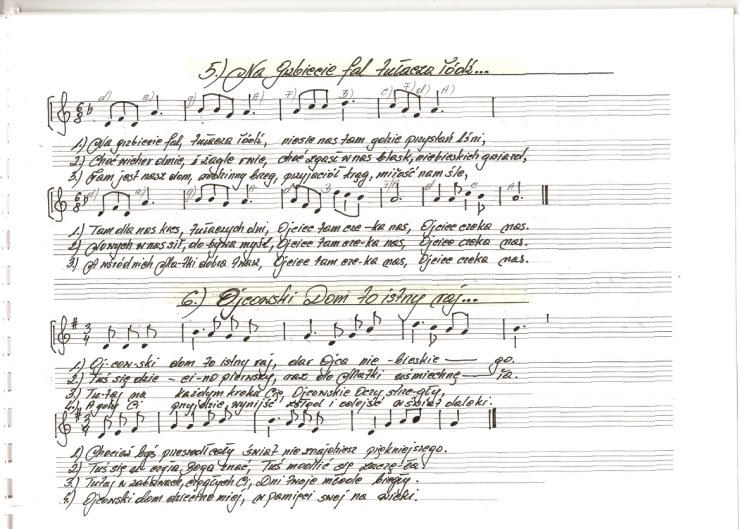 5.) Na grzbiecie fal tułacza łódź...
d) a) g) A) F) B) C) F) d) A)
1.) Na grzbiecie fal, tułacza łódź, niesie nas tam gdzie przystań lśni,
2.) Choć wicher dmie, i żagle rwie, choć zgasł w nas blask, niebieskich gwiazd,
3.) Tam jest nasz dom, rodzinny brzeg, przyjaciół krąg, miłość nam śle,
1.) Tam dla nas kres, tułaczych dni, Ojciec tam cze-ka nas, Ojciec czeka nas.
2.) Nowych w nas sił, do-bywa myśl, Ojciec tam cze-ka nas, Ojciec czeka nas.
3.) A wśród nich Ma-tki dobra twarz, Ojciec tam cze-ka nas, Ojciec czeka nas.
6.) Ojcowski Dom to istny raj...
1.) Oj-cow-ski dom to istny raj, dar Ojca nie-bieskie — go.
2.) Tuś się dzie-ci-no pierwszy, raz do Matki uśmiechnę — ła.
3.) Tu-taj na każdym kroku Cię, Ojcowskie Oczy strze-gły,
4.) A gdy Ci przyjdzie, wynijść stąd i odejść w świat daleki.
1.) Chociaż byś przeszedł cały świat nie znajdziesz piękniejszego.
2.) Tuś się uczyła, Boga znać, Tuś modlić się zaczę-ła
3.) Tutaj w zabawach, Ci, Dni Twoje młode biegły.
4.) Ojcowski dom dziecino miej, w pamięci swej na wieki.